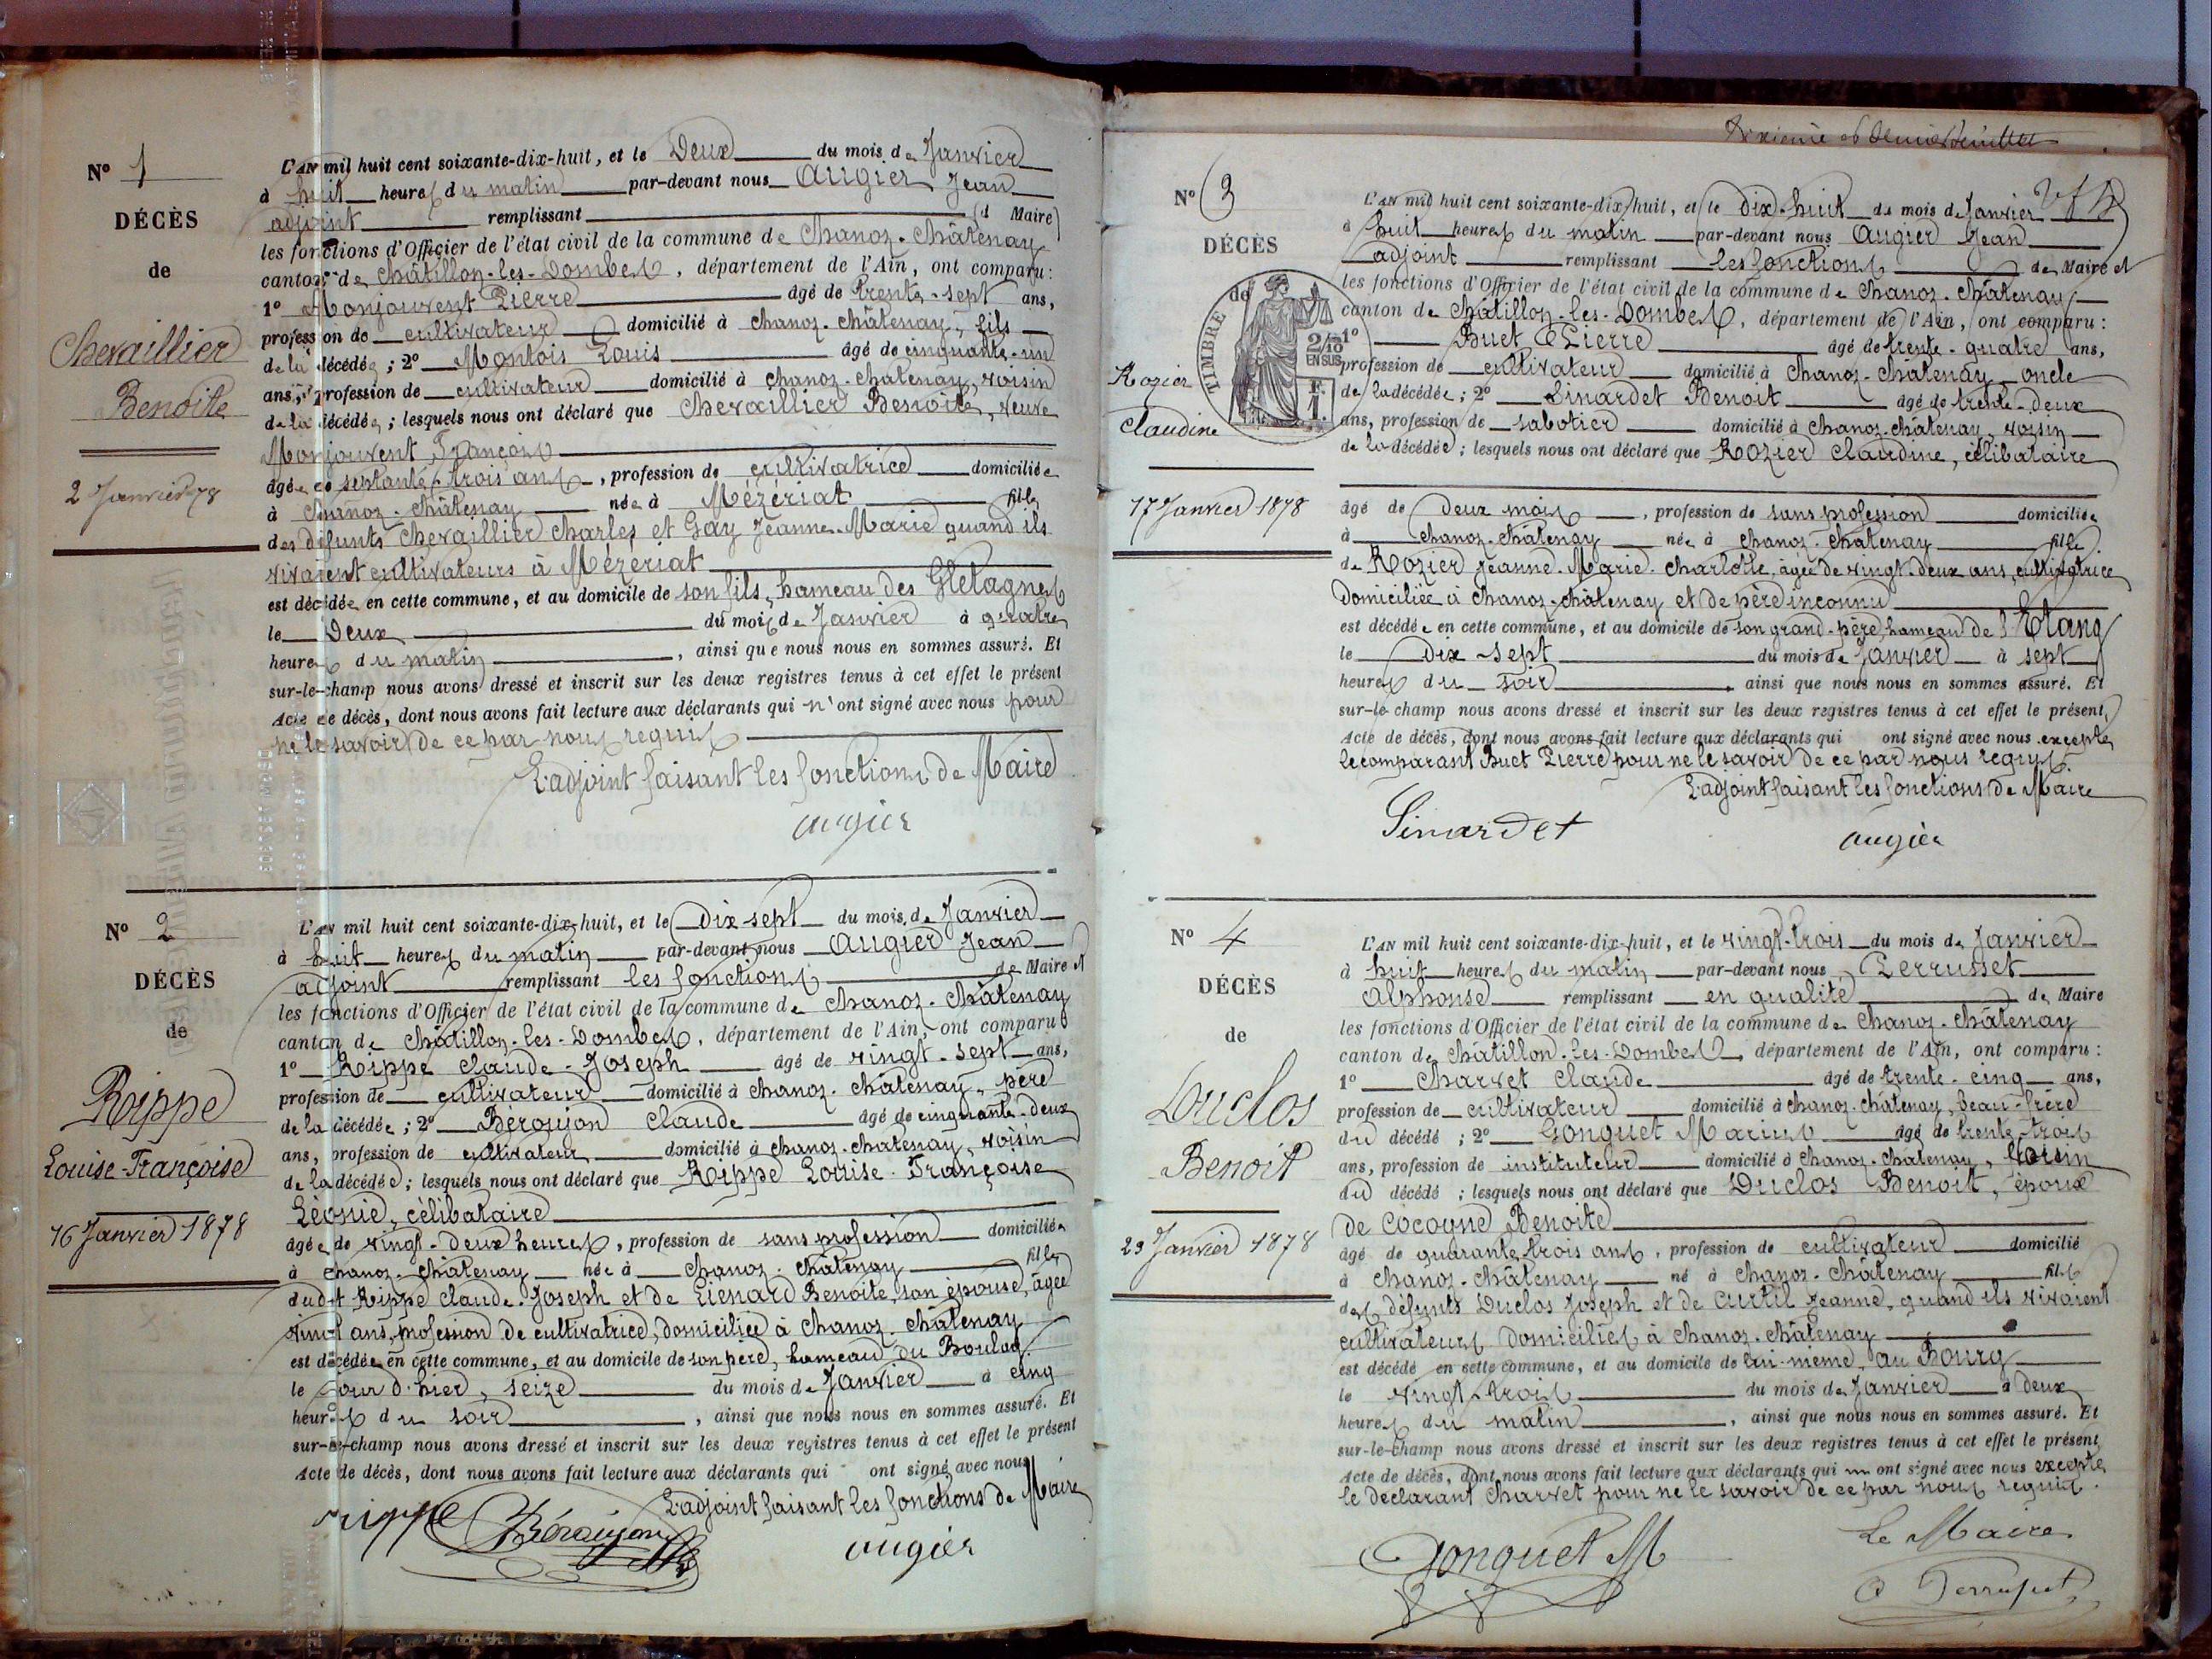 Nº 1
DÉCÈS
de
Chevaillier
Benoite
2 Janvier 78
L'AN mil huit cent soixante-dix-huit, et le Deux du mois de Janvier
à huit heures du matin par-devant nous Augier Jean
adjoint remplissant (d Maire)
les fonctions d'Officier de l'état civil de la commune de Chanoz-Châtenay
canton de Châtillon-les-Dombes, département de l'Ain, ont comparu :
1º Monjouvent Pierre âgé de trente-sept ans,
profession de cultivateur domicilié à Chanoz-Châtenay, fils
de la décédée ; 2º Montois Louis âgé de cinquante-un
ans, profession de cultivateur domicilié à Chanoz-Châtenay, voisin
de la décédée ; lesquels nous ont déclaré que Chevaillier Benoite, veuve
Monjouvent François
âgée de septante-trois ans, profession de cultivatrice domiciliée
à Chanoz-Châtenay née à Mézériat fille
des défunts Chevaillier Charles et Gay Jeanne-Marie quand ils
vivaient cultivateurs à Mézériat
est décédée en cette commune, et au domicile de son fils, hameau des Gletagnes
le Deux du mois de Janvier à quatre
heures du matin, ainsi que nous nous en sommes assuré. Et
sur-le-champ nous avons dressé et inscrit sur les deux registres tenus à cet effet le présent
Acte de décès, dont nous avons fait lecture aux déclarants qui n'ont signé avec nous pour
ne le savoir de ce par nous requis
L'adjoint faisant les fonctions de Maire
augier
Nº 2
DÉCÈS
de
Rippe
Louise-Françoise
16 Janvier 1878
L'AN mil huit cent soixante-dix-huit, et le Dix-sept du mois de Janvier
à huit heures du matin par-devant nous Augier Jean
adjoint remplissant les fonctions de Maire et
les fonctions d'Officier de l'état civil de la commune de Chanoz-Châtenay
canton de Châtillon-les-Dombes, département de l'Ain, ont comparu
1º Rippe Claude-Joseph âgé de vingt-sept ans,
profession de cultivateur domicilié à Chanoz-Châtenay, père
de la décédée ; 2º Béroujon Claude âgé de cinquante-deux
ans, profession de cultivateur domicilié à Chanoz-Chatenay, voisin
de la décédée ; lesquels nous ont déclaré que Rippe Louise-Françoise
Léonie, célibataire
âgée de vingt-deux heures, profession de sans profession domiciliée
à Chanoz-Châtenay née à Chanoz-Châtenay fille
dudit Rippe Claude-Joseph et de Lienard Benoite, son épouse, âgée
vingt ans, profession de cultivatrice, domiciliée à Chanoz-Châtenay
est décédée en cette commune, et au domicile de son père, hameau du Boulay
le jour d'hier, seize du mois de Janvier à cinq
heures du soir, ainsi que nous nous en sommes assuré. Et
sur-le-champ nous avons dressé et inscrit sur les deux registres tenus à cet effet le présent
Acte de décès, dont nous avons fait lecture aux déclarants qui ont signé avec nous
L'adjoint faisant les fonctions de Maire
rippe Béroujon augier
Nº 3
DÉCÈS
de
Rozier
Claudine
17 Janvier 1878
TIMBRE
2/10
EN SUS
L'AN mil huit cent soixante-dix-huit, et le Dix-huit du mois de Janvier
à huit heures du matin par-devant nous Augier Jean
adjoint remplissant les fonctions de Maire et
les fonctions d'Officier de l'état civil de la commune de Chanoz-Châtenay
canton de Châtillon-les-Dombes, département de l'Ain, ont comparu :
1º Buet Pierre âgé de trente-quatre ans,
profession de cultivateur domicilié à Chanoz-Chatenay oncle
de la décédée ; 2º Sinardet Benoit âgé de trente-deux
ans, profession de sabotier domicilié à Chanoz-Châtenay, voisin
de la décédée ; lesquels nous ont déclaré que Rozier Claudine, célibataire
âgé de deux mois, profession de sans profession domiciliée
à Chanoz-Châtenay née à Chanoz-Châtenay fille
de Rozier Jeanne-Marie-Charlotte, âgée de vingt-deux ans, cultivatrice
Domiciliée à Chanoz-Châtenay et de père inconnu
est décédée en cette commune, et au domicile de son grand-père, hameau de l'Etang
le dix-sept du mois de Janvier à sept
heures du soir, ainsi que nous nous en sommes assuré. Et
sur-le-champ nous avons dressé et inscrit sur les deux registres tenus à cet effet le présent,
Acte de décès, dont nous avons fait lecture aux déclarants qui ont signé avec nous excepté
le comparant Buet Pierre pour ne le savoir de ce par nous requis.
L'adjoint faisant les fonctions de Maire
Sinardet augier
Nº 4
DÉCÈS
de
Duclos
Benoit
23 Janvier 1878
L'AN mil huit cent soixante-dix-huit, et le vingt-trois du mois de Janvier
à huit heures du matin par-devant nous Perrusset
Alphonse remplissant en qualité de Maire
les fonctions d'Officier de l'état civil de la commune de Chanoz-Châtenay
canton de Châtillon-les-Dombes, département de l'Ain, ont comparu :
1º Charvet Claude âgé de trente-cinq ans,
profession de cultivateur domicilié à Chanoz-Châtenay, beau-frère
du décédé ; 2º Gonguet Marius âgé de trente-trois
ans, profession de instituteur domicilié à Chanoz-Châtenay, voisin
du décédé ; lesquels nous ont déclaré que Duclos Benoit, époux
de Cocogne Benoite
âgé de quarante trois ans, profession de cultivateur domicilié
à Chanoz-Châtenay né à Chanoz-Châtenay fils
des défunts Duclos Joseph et de Curtil Jeanne, quand ils vivaient
cultivateurs domiciliés à Chanoz-Châtenay
est décédé en cette commune, et au domicile de lui-même, au Bourg
le vingt-trois du mois de Janvier à deux
heures du matin, ainsi que nous nous en sommes assuré. Et
sur-le-champ nous avons dressé et inscrit sur les deux registres tenus à cet effet le présent
Acte de décès, dont nous avons fait lecture aux déclarants qui ont signé avec nous excepté
le déclarant Charvet pour ne le savoir de ce par nous requis.
Le Maire
Gonguet M A Perrusset